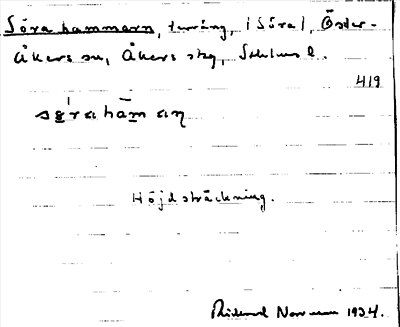 Söra hammarn, terräng, (Söra), Öster-
Åkers sn, Åkers skg, Sthlms l.
419
Höjdsträckning.
Rickard Norrman 1934.